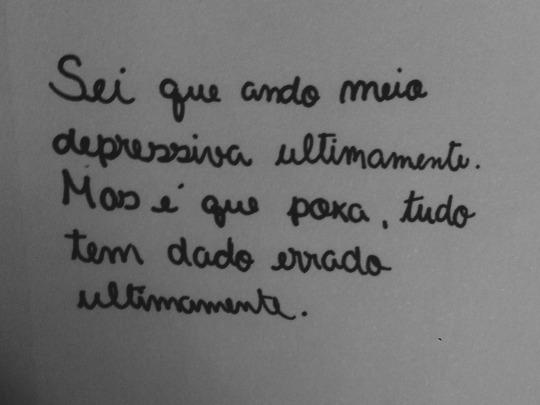 Sei que ando meio
depressiva ultimamente.
Mas é que poxa, tudo
tem dado errado
ultimamente.